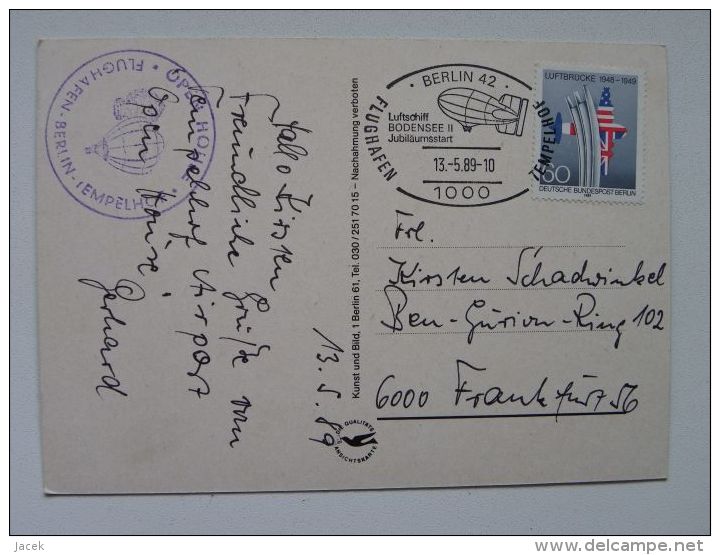 OPEN HOUSE
FLUGHAFEN-BERLIN-TEMPELHOF
Hallo Kirsten
Freundliche Grüße vom
Tempelhof Airport
Open House.
Gerhard
13.5.89
Kunst und Bild, 1 Berlin 61, Tel. 030/2517015 – Nachahmung verboten
DIE QUALITÄTS
ANSICHTSKARTE
BERLIN 42
FLUGHAFEN TEMPELHOF
Luftschiff
BODENSEE II
Jubiläumsstart
13.-5.89-10
1000
LUFTBRÜCKE 1948-1949
60
DEUTSCHE BUNDESPOST BERLIN
Frl.
Kirsten Schadwinkel
Ben-Gurion-Ring 102
6000 Frankfurt 56
Jacek
delcampe.net